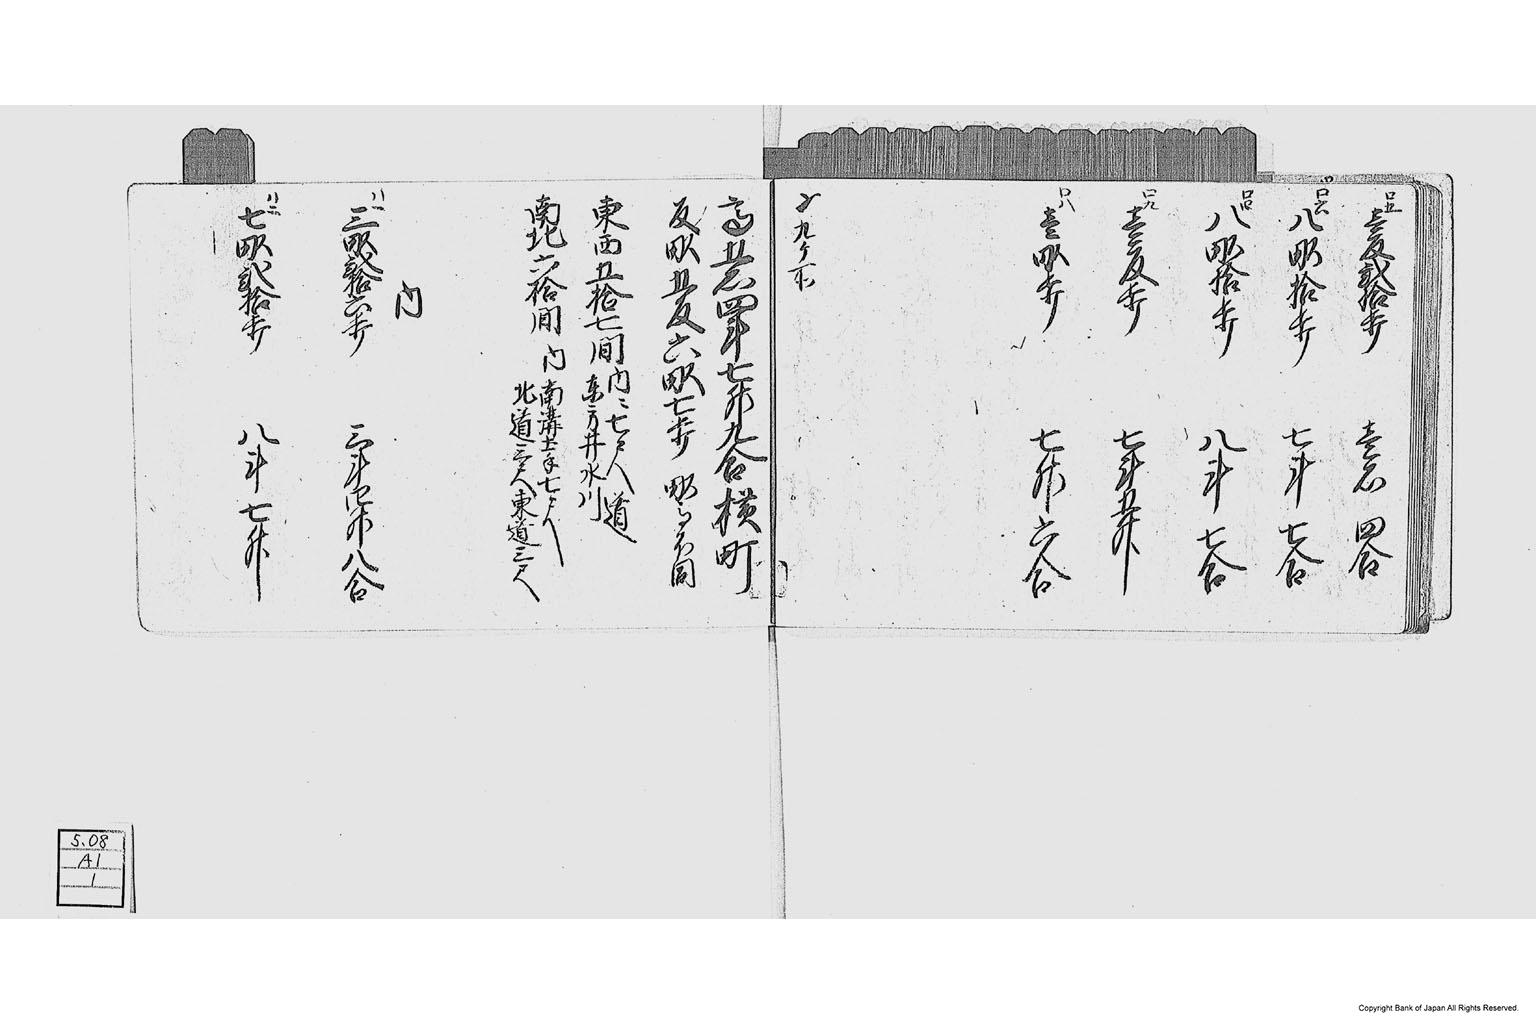 口五
壱反弐拾歩 壱石四合
口六
八畝拾歩 七斗七合
口四
八畝拾歩 八斗七合
口九
壱反歩 七斗五升
口八
壱畝歩 七升六合
〆九ヶ所
高五石四斗七升九合 横町
反畝五反六畝七歩
東西五拾七間 内ニ七尺八道
東ノ方井水川
南北六拾間 内 南溝土手七尺八
北道三尺八東道三尺八
内
ハ一
三畝弐拾六歩 三斗四升八合
ハ二
七畝弐拾歩 八斗七升
5.08
A1
1
Copyright Bank of Japan All Rights Reserved.